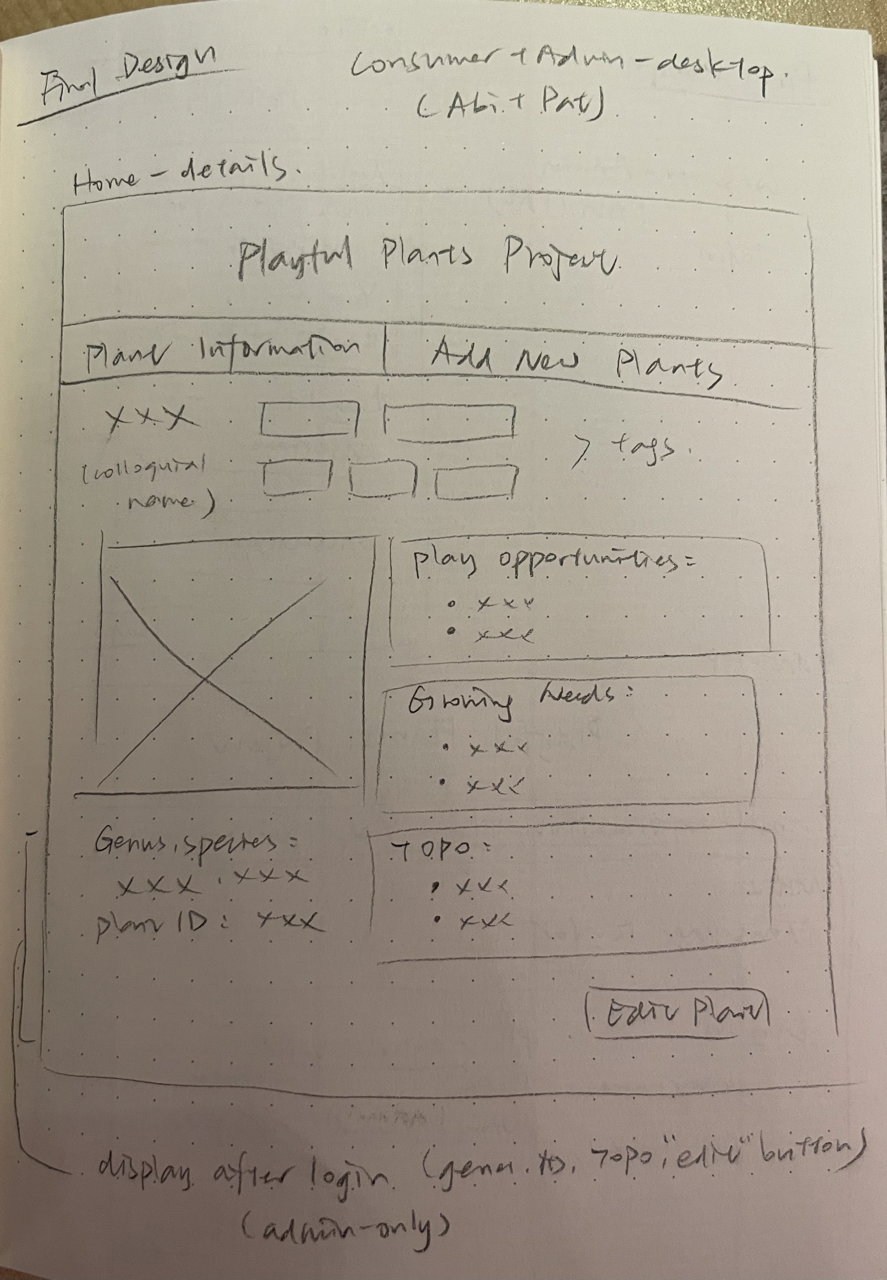 Final Design
Consumer + Admin - desktop.
(Abi + Pat)
Home - details.
Playful Plants Project
Plant Information | Add New Plants
xxx
(colloquial
name)
> tags.
Play opportunities:
• xxx
• xxx
Growing Needs:
• xxx
• xxx
Genus, species:
xxx, xxx
plant ID: xxx
TOPO:
• xxx
• xxx
Edit Plant
display after login (genu. ID, Topo, "edit" button)
(admin-only)